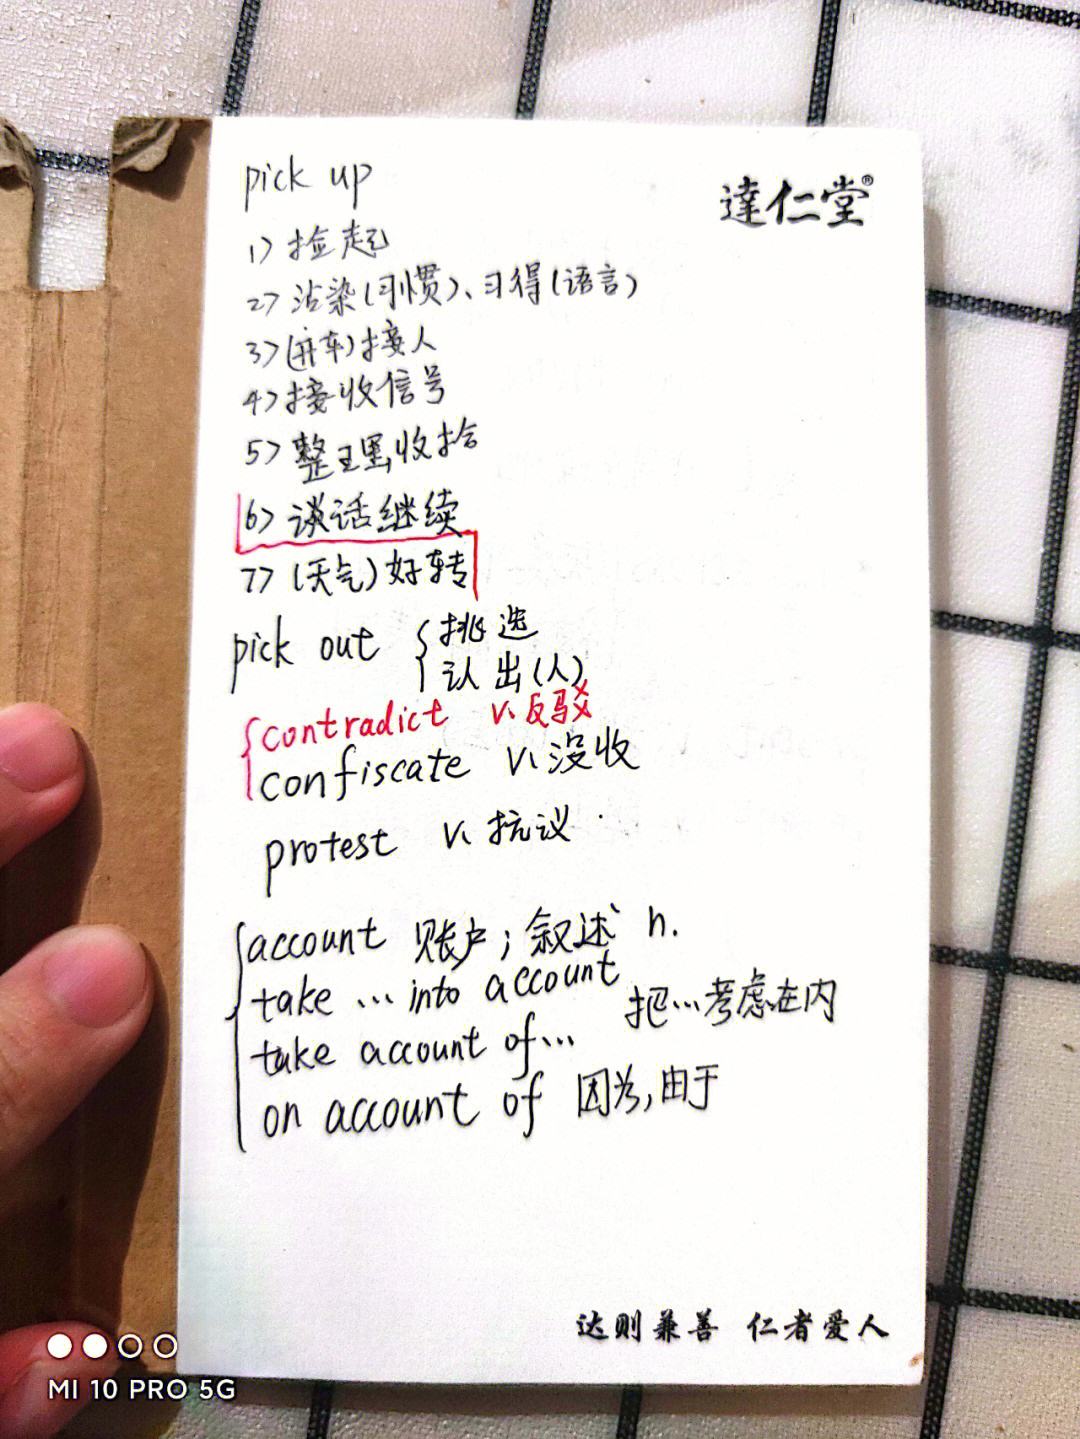 pick up
達仁堂®
1> 捡起
2> 沾染(习惯)、习得(语言)
3> (开车)接人
4> 接收信号
5> 整理,收拾
6> 谈话继续
7> (天气)好转
pick out { 挑选
认出(人)
contradict v. 反驳
confiscate v. 没收
protest v. 抗议
account 账户;叙述 n.
take ... into account
把...考虑在内
take account of...
on account of 因为,由于
达则兼善 仁者爱人
MI 10 PRO 5G